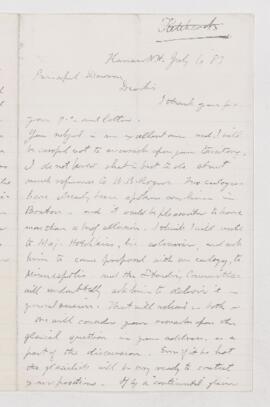 Hitchcock
Hanover N.H. July 6 83
Principal Dawson
Dear Sir
I thank you for
your p.c. and letter.
Your subject is an excellent one and I will
be careful not to encroach upon your territory.
I do not know what is best to do about
much reference to W. B. Rogers. Two eulogies
have already been spoken in
Boston and it would be pleasanter to have
more than a brief allusion. I think I will write
to Maj. Hotchkiss, his and ask
him to come prepared with an eulogy, to
Minneapolis and the Standing Committee
will undoubtedly ask him to deliver it in
general session. That will relieve us both
One will consider your remarks upon the
glacial question in your address, as a
part of the discussion. Even if it be hot
the glacialists will be very ready to contest
your positions. If by a "continental glacier